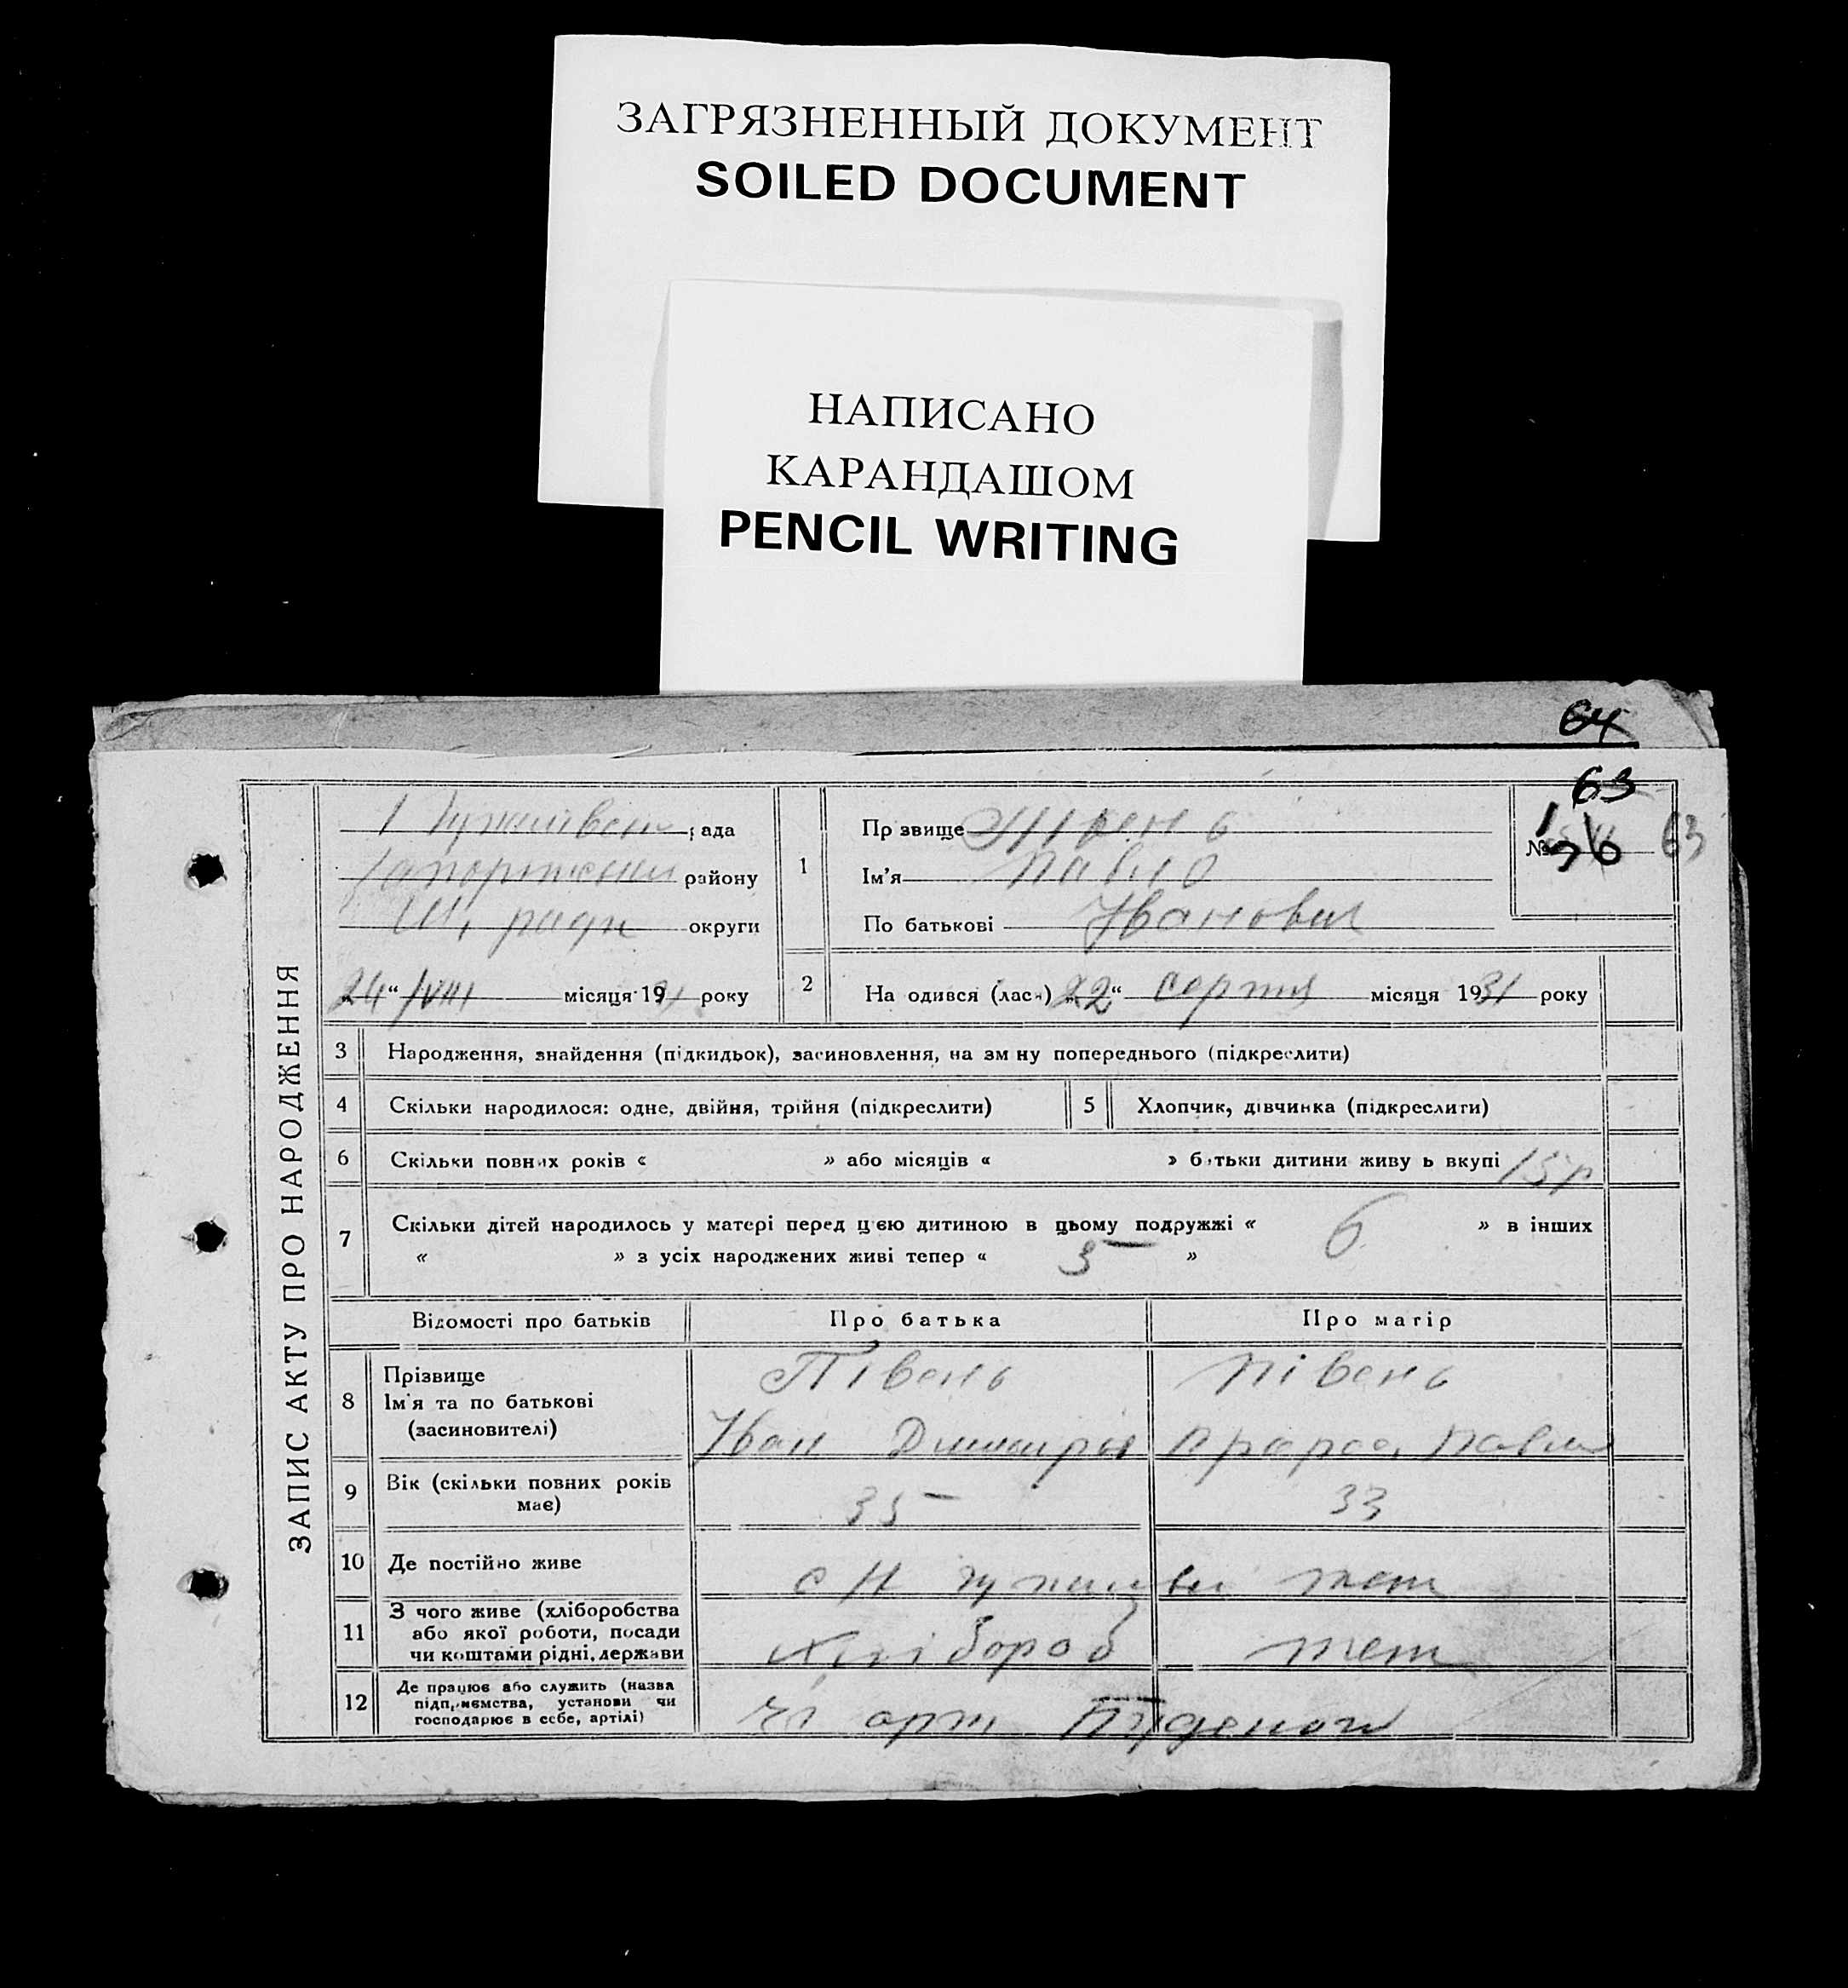 ЗАГРЯЗНЕННЫЙ ДОКУМЕНТ
SOILED DOCUMENT
НАПИСАНО
КАРАНДАШОМ
PENCIL WRITING
64
63
63
№ 36
ЗАПИС АКТУ ПРО НАРОДЖЕННЯ
рада
району
округи
24 “ VIII місяця 1931 року
1
Прзвище
Ім’я Павло
По батькові Иванович
2 На одився (лася) „22“ серпня місяця 1931 року
3 Народження, знайдення (підкидьок), засиновлення, на зм ну попереднього (підкреслити)
4 Скільки народилося: одне, двійня, трійня (підкреслити) 5 Хлопчик, дівчинка (підкреслити)
6 Скільки повних років « » або місяців « » батьки дитини живу ь вкупі 15 р
7 Скільки дітей народилось у матері перед цією дитиною в цьому подружжі « 6 » в інших
« » з усіх народжених живі тепер « »
Відомості про батьків Про батька Про матір
8 Прізвище Півень Півень
Ім’я та по батькові
(засиновителі) Иван
9 Вік (скільки повних років 35 33
має)
10 Де постійно живе с Н теж
11 З чого живе (хліборобства
або якої роботи, посади
чи коштами рідні, держави хлібороб теж
12 Де працює або служить (назва
підприємства, установи чи
господарює в себе, артілі) арт